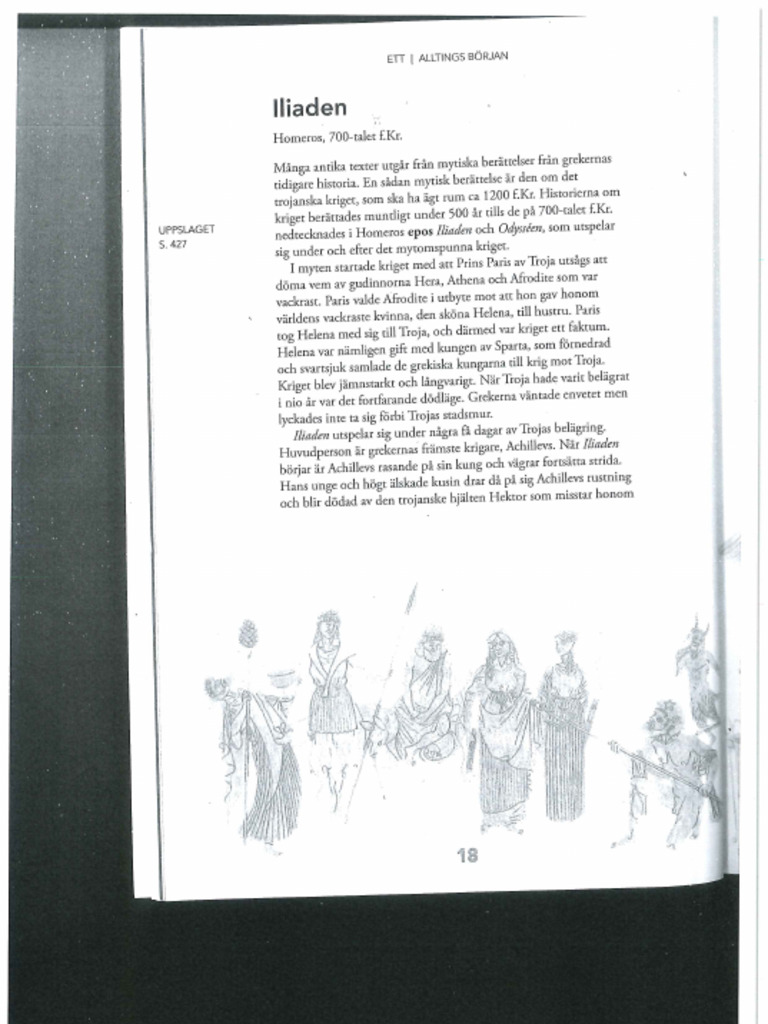 ETT | ALLTINGS BÖRJAN
Iliaden
Homeros, 700-talet f.Kr.
Många antika texter utgår från mytiska berättelser från grekernas
tidigare historia. En sådan mytisk berättelse är den om det
trojanska kriget, som ska ha ägt rum ca 1200 f.Kr. Historierna om
kriget berättades muntligt under 500 år tills de på 700-talet f.Kr.
nedtecknades i Homeros epos Iliaden och Odysséen, som utspelar
sig under och efter det mytomspunna kriget.
UPPSLAGET
S. 427
I myten startade kriget med att Prins Paris av Troja utsågs att
döma vem av gudinnorna Hera, Athena och Afrodite som var
vackrast. Paris valde Afrodite i utbyte mot att hon gav honom
världens vackraste kvinna, den sköna Helena, till hustru. Paris
tog Helena med sig till Troja, och därmed var kriget ett faktum.
Helena var nämligen gift med kungen av Sparta, som förnedrad
och svartsjuk samlade de grekiska kungarna till krig mot Troja.
Kriget blev jämnstarkt och långvarigt. När Troja hade varit belägrat
i nio år var det fortfarande dödläge. Grekerna väntade envetet men
lyckades inte ta sig förbi Trojas stadsmur.
Iliaden utspelar sig under några få dagar av Trojas belägring.
Huvudperson är grekernas främste krigare, Achillevs. När Iliaden
börjar är Achillevs rasande på sin kung och vägrar fortsätta strida.
Hans unge och högt älskade kusin drar då på sig Achillevs rustning
och blir dödad av den trojanske hjälten Hektor som misstar honom
18